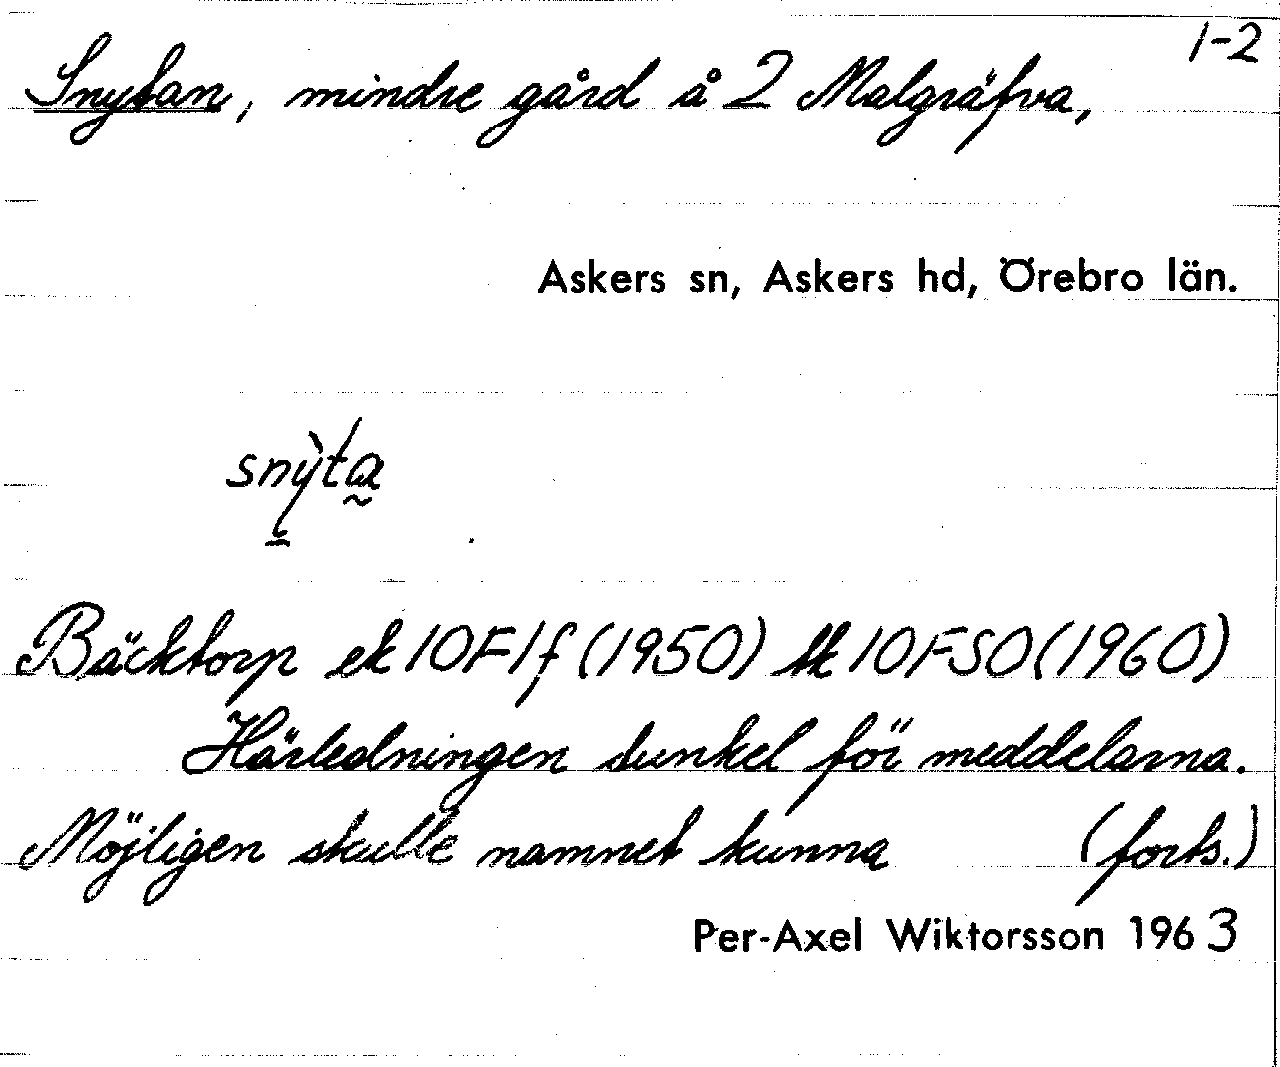 1-2
Snytan, mindre gård å 2 Malgräfva,
Askers sn, Askers hd, Örebro län.
snỳta
Bäcktorp ek 10F1f (1950) 10FSO (1960)
Härledningen dunkel för meddelarna.
Möjligen skulle namnet kunna (forts.)
Per-Axel Wiktorsson 1963